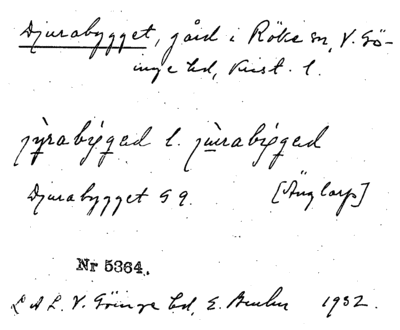 Djurabygget, gård i Röke sn, V. Gö-
inge hd, Krist. l.
jy̤rabig̣ꞬaꞬ l. ju̲rabig̣ꞬaꞬ
Djurabygget G 9. [Änglarp]
Nr 5364.
L A L. V. Göinge hd, E. 1932.